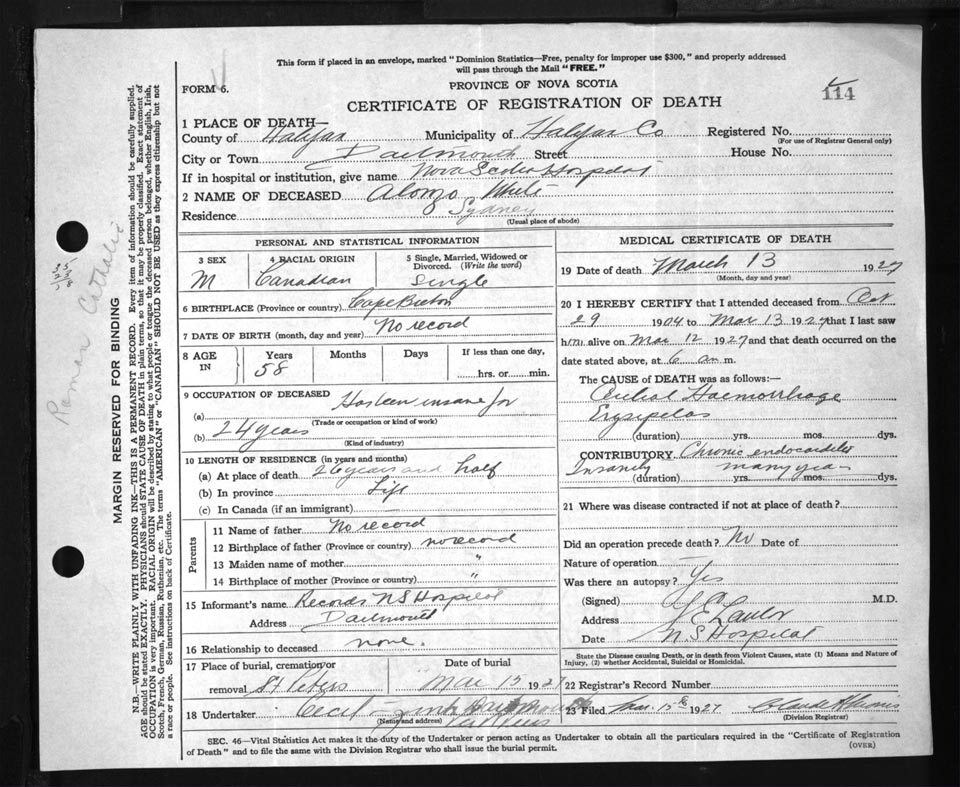 This form if placed in an envelope, marked "Dominion Statistics—Free, penalty for improper use $300," and properly addressed
will pass through the Mail "FREE."
FORM 6.
PROVINCE OF NOVA SCOTIA
CERTIFICATE OF REGISTRATION OF DEATH
114
1 PLACE OF DEATH—
County of Halifax Municipality of Halifax Co Registered No.
(For use of Registrar General only)
City or Town Dartmouth Street House No.
If in hospital or institution, give name Nova Scotia Hospital
2 NAME OF DECEASED Alonzo White
Residence Sydney
(Usual place of abode)
PERSONAL AND STATISTICAL INFORMATION
3 SEX 4 RACIAL ORIGIN 5 Single, Married, Widowed or
Divorced. (Write the word)
M Canadian Single
6 BIRTHPLACE (Province or country) Cape Breton
7 DATE OF BIRTH (month, day and year) No record
8 AGE IN Years Months Days If less than one day,
58 hrs. or min.
9 OCCUPATION OF DECEASED Has been insane for
(a) (Trade or occupation or kind of work)
(b) 24 years
(Kind of industry)
10 LENGTH OF RESIDENCE (in years and months)
(a) At place of death 26 years and half
(b) In province Life
(c) In Canada (if an immigrant)
Parents
11 Name of father No record
12 Birthplace of father (Province or country) no record
13 Maiden name of mother "
14 Birthplace of mother (Province or country) "
15 Informant's name Records NS Hospital
Address Dartmouth
16 Relationship to deceased none.
17 Place of burial, cremation or Date of burial
removal St Peters Mar 15 1927
18 Undertaker Cecil Dartmouth
(Name and address)
MEDICAL CERTIFICATE OF DEATH
19 Date of death March 13 1927
(Month, day and year)
20 I HEREBY CERTIFY that I attended deceased from Oct
29 1904 to Mar 13 1927 that I last saw
him alive on Mar 12 1927 and that death occurred on the
date stated above, at 6 am m.
The CAUSE OF DEATH was as follows:—
Haemorrhage
Erysipelas
(duration) yrs. mos. dys.
CONTRIBUTORY Chronic endocarditis
Insanity many years
(duration) yrs. mos. dys.
21 Where was disease contracted if not at place of death?
Did an operation precede death? No Date of
Nature of operation
Was there an autopsy? Yes
(Signed) M.D.
Address Lawlor
Date N S Hospital
State the Disease causing Death, or in death from Violent Causes, state (1) Means and Nature of
Injury, (2) whether Accidental, Suicidal or Homicidal.
22 Registrar's Record Number
23 Filed Mar. 15th 1927
(Division Registrar)
SEC. 46—Vital Statistics Act makes it the duty of the Undertaker or person acting as Undertaker to obtain all the particulars required in the "Certificate of Registration
of Death" and to file the same with the Division Registrar who shall issue the burial permit. (OVER)
MARGIN RESERVED FOR BINDING
N.B.—WRITE PLAINLY WITH UNFADING INK—THIS IS A PERMANENT RECORD. Every item of information should be carefully supplied.
AGE should be stated EXACTLY. PHYSICIANS should STATE CAUSE OF DEATH in plain terms, so that it may be properly classified. Exact statement of
OCCUPATION is very important. RACIAL ORIGIN will be described by stating to what people or tongue the deceased person belonged, whether English, Irish,
Scotch, French, German, Russian, Ruthenian, etc. The terms "AMERICAN" or "CANADIAN" SHOULD NOT BE USED as they express citizenship but not
a race or people. See instructions on back of Certificate.
Roman Catholic